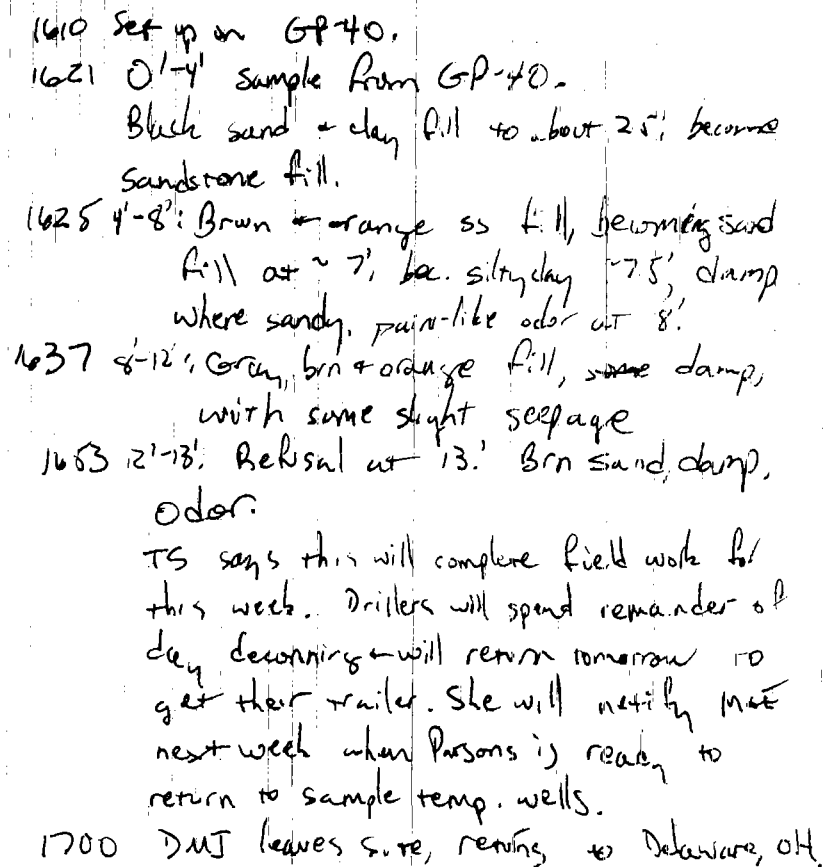 1610 Set up on GP-40.
1621 0'-4' sample from GP-40.
Black sand + clay fill to about 2.5', become
sandstone fill.
1625 4'-8': Brwn + orange ss fill, becoming sand
fill at ~ 7', bec. silty clay ~7.5', damp
where sandy, pain-like odor at 8'.
1637 8'-12': Gray, brn + orange fill, damp,
with some slight seepage
1653 12'-13'. Refusal at 13.' Brn sand, damp,
odor.
TS says this will complete field work for
this week. Drillers will spend remainder of
day deconning + will return tomorrow to
get their trailer. She will notify me
next week when Parsons is ready to
return to sample temp. wells.
1700 DMJ leaves site, returns to Delaware, OH.